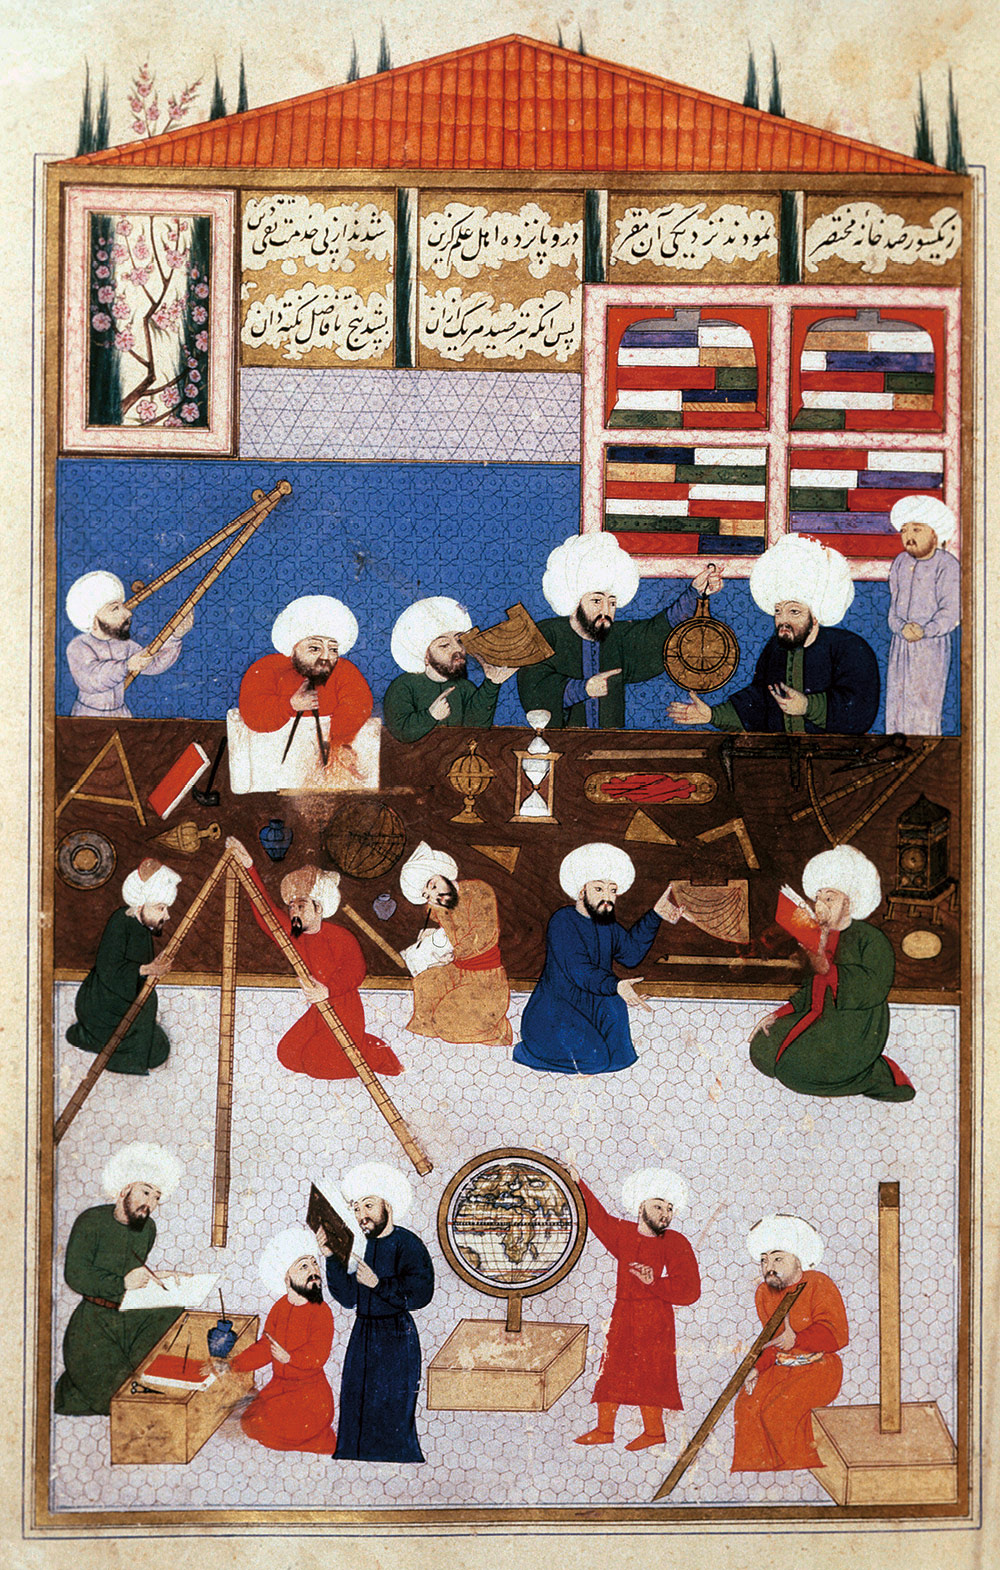 زیکسو رصد خانهٔ مختصر
نمودند نزدیکی آن مقر
درو پانزده اهل علم گزین
شدند از پی خدمت تقی دین
پس انکه بترصید هر یک ازان
بشد پنج با فاضل نکته دان